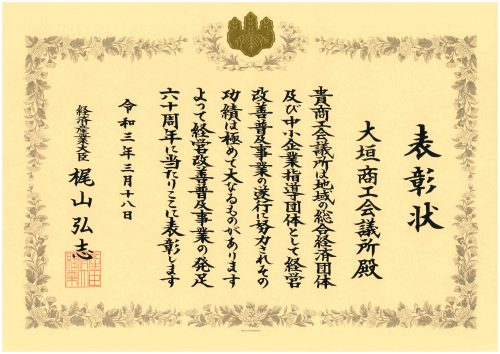 表彰状
大垣商工会議所殿
貴商工会議所は地域の総合経済団体
及び中小企業指導団体として経営
改善普及事業の遂行に努力されその
功績は極めて大なるものがあります
よって経営改善普及事業の発足
六十周年に当たりここに表彰します
令和三年三月十八日
経済産業大臣 梶山弘志